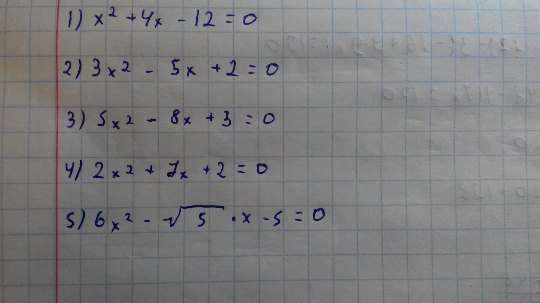 1) x² + 4x - 12 = 0
2) 3x² - 5x + 2 = 0
3) 5x² - 8x + 3 = 0
4) 2x² + 7x + 2 = 0
5) 6x² - √5 · x - 5 = 0